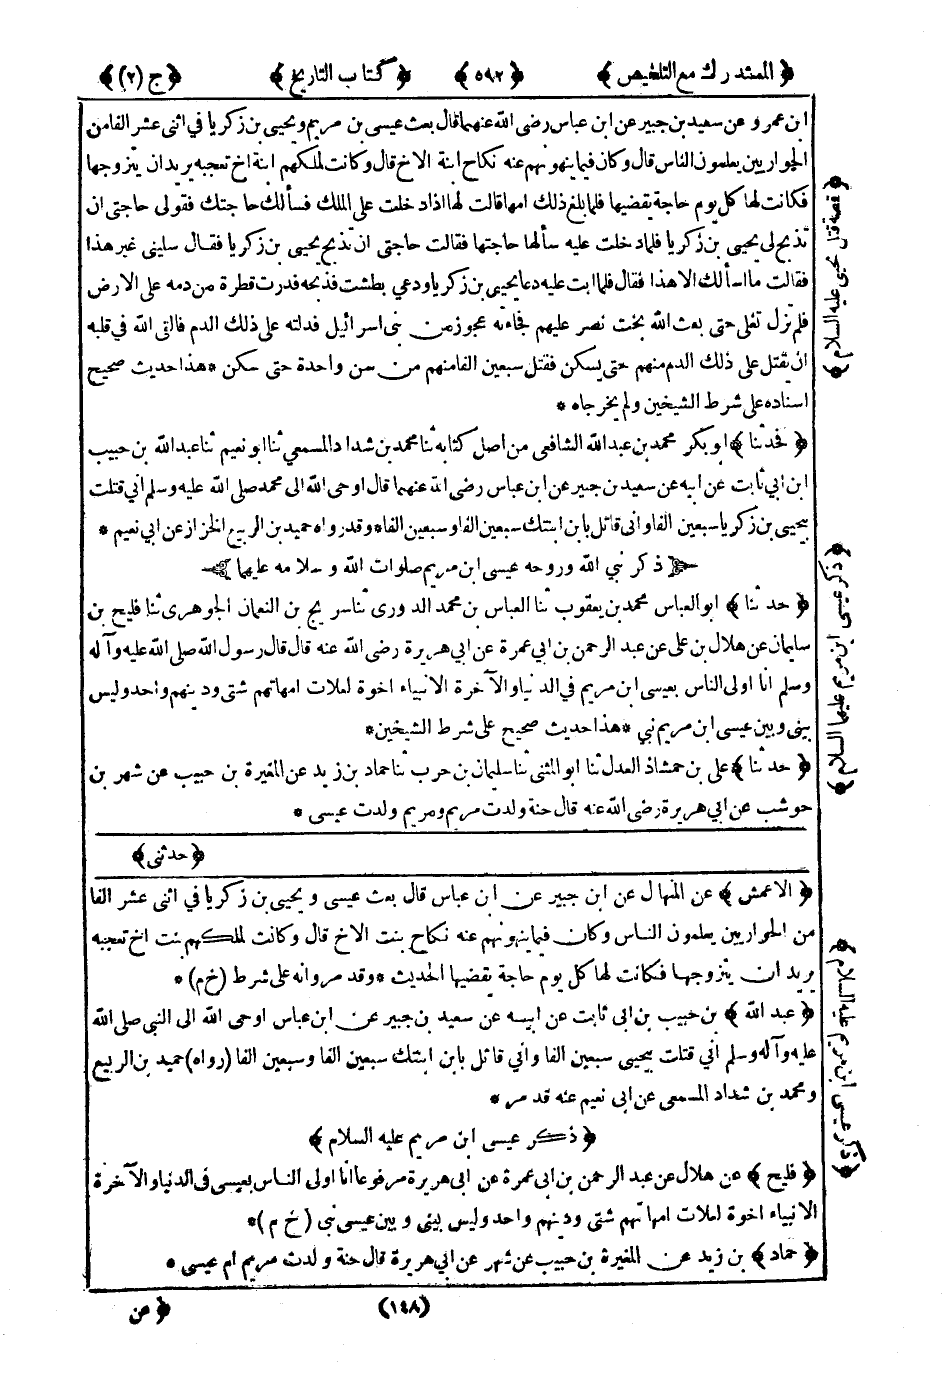 ﴿ المستدرك مع التلخيص ﴾ ﴿ ٥٩٢ ﴾ ﴿ كتاب التاريخ ﴾ ﴿ ج (٢) ﴾
ابن عمرو عن سعيد بن جبير عن ابن عباس رضى الله عنهما قال بعث عيسى بن مريم ويحيى بن زكريا في اثنى عشر الفا من
الحواريين يعلمون الناس قال وكان فيما ينهونهم عنه نكاح ابنة الاخ قال وكانت لملكهم ابنة اخ تعجبه يريد ان يتزوجها
فكانت لها كل يوم حاجة يقضيها فلما بلغ ذلك امها قالت لها اذا دخلت على الملك فسألك حاجتك فقولى حاجتى ان
تذبح لى يحيى بن زكريا فلما دخلت عليه سألها حاجتها فقالت حاجتى ان تذبح يحيى بن زكريا فقال سلينى غير هذا
فقالت ما اسألك الا هذا فقال فلما ابت عليه دعا يحيى بن زكريا ودعي بطشت فذبحه فدرت قطرة من دمه على الارض
فلم تزل تغلى حتى بعث الله بخت نصر عليهم فجاءته عجوز من بنى اسرائيل فدلته على ذلك الدم فالقى الله في قلبه
ان يقتل على ذلك الدم منهم حتى يسكن فقتل سبعين الفا منهم من سن واحدة حتى سكن * هذا حديث صحيح
اسناده على شرط الشيخين ولم يخرجاه *
﴿ فحدثنا ﴾ ابو بكر محمد بن عبد الله الشافعى من اصل كتابه ثنا محمد بن شداد المسمعي ثنا ابو نعيم ثنا عبد الله بن حبيب
ابن ابي ثابت عن ابيه عن سعيد بن جبير عن ابن عباس رضى الله عنهما قال اوحى الله الى محمد صلى الله عليه وسلم اني قتلت
بيحيى بن زكريا سبعين الفا وانى قاتل بابن ابنتك سبعين الفا وسبعين الفا * وقد رواه حميد بن الربيع الخزاز عن ابي نعيم *
ذكر نبي الله وروحه عيسى ابن مريم صلوات الله وسلامه عليهما
﴿ حدثنا ﴾ ابو العباس محمد بن يعقوب ثنا العباس بن محمد الدورى ثنا سريج بن النعمان الجوهرى ثنا فليح بن
سليمان عن هلال بن على عن عبد الرحمن بن ابي عمرة عن ابي هريرة رضى الله عنه قال قال رسول الله صلى الله عليه وآله
وسلم انا اولى الناس بعيسى ابن مريم في الدنيا والآخرة الانبياء اخوة لعلات امهاتهم شتى ودينهم واحد وليس
بينى وبين عيسى ابن مريم نبي * هذا حديث صحيح على شرط الشيخين *
﴿ حدثنا ﴾ على بن حمشاذ العدل ثنا ابو المثنى ثنا سليمان بن حرب ثنا حماد بن زيد عن المغيرة بن حبيب عن شهر بن
حوشب عن ابي هريرة رضى الله عنه قال حنة ولدت مريم ومريم ولدت عيسى *
﴿ حدثنى ﴾
﴿ الاعمش ﴾ عن المنهال عن ابن جبير عن ابن عباس قال بعث عيسى ويحيى بن زكريا في اثنى عشر الفا
من الحواريين يعلمون الناس وكان فيما ينهونهم عنه نكاح بنت الاخ قال وكانت لملكهم بنت اخ تعجبه
يريد ان يتزوجها فكانت لها كل يوم حاجة يقضيها الحديث * وقد مر وانه على شرط (خ م) *
﴿ عبد الله ﴾ بن حبيب بن ابى ثابت عن ابيه عن سعيد بن جبير عن ابن عباس اوحى الله الى النبي صلى الله
عليه وآله وسلم اني قتلت بيحيى سبعين الفا واني قاتل بابن ابنتك سبعين الفا وسبعين الفا (رواه) حميد بن الربيع
ومحمد بن شداد المسمعى عن ابى نعيم عنه قد مر *
﴿ ذكر عيسى ابن مريم عليه السلام ﴾
﴿ فليح ﴾ عن هلال عن عبد الرحمن بن ابى عمرة عن ابى هريرة مرفوعا انا اولى الناس بعيسى فى الدنيا والآخرة
الانبياء اخوة لعلات امهاتهم شتى ودينهم واحد وليس بينى وبين عيسى نبى (خ م) *
﴿ حماد ﴾ بن زيد عن المغيرة بن حبيب عن شهر عن ابي هريرة قال حنة ولدت مريم ام عيسى *
(١٤٨) ﴿ عن
﴿ قصة قتل يحيى عليه السلام ﴾
﴿ ذكر عيسى ابن مريم عليهما السلام ﴾
﴿ ذكر عيسى ابن مريم عليه السلام ﴾